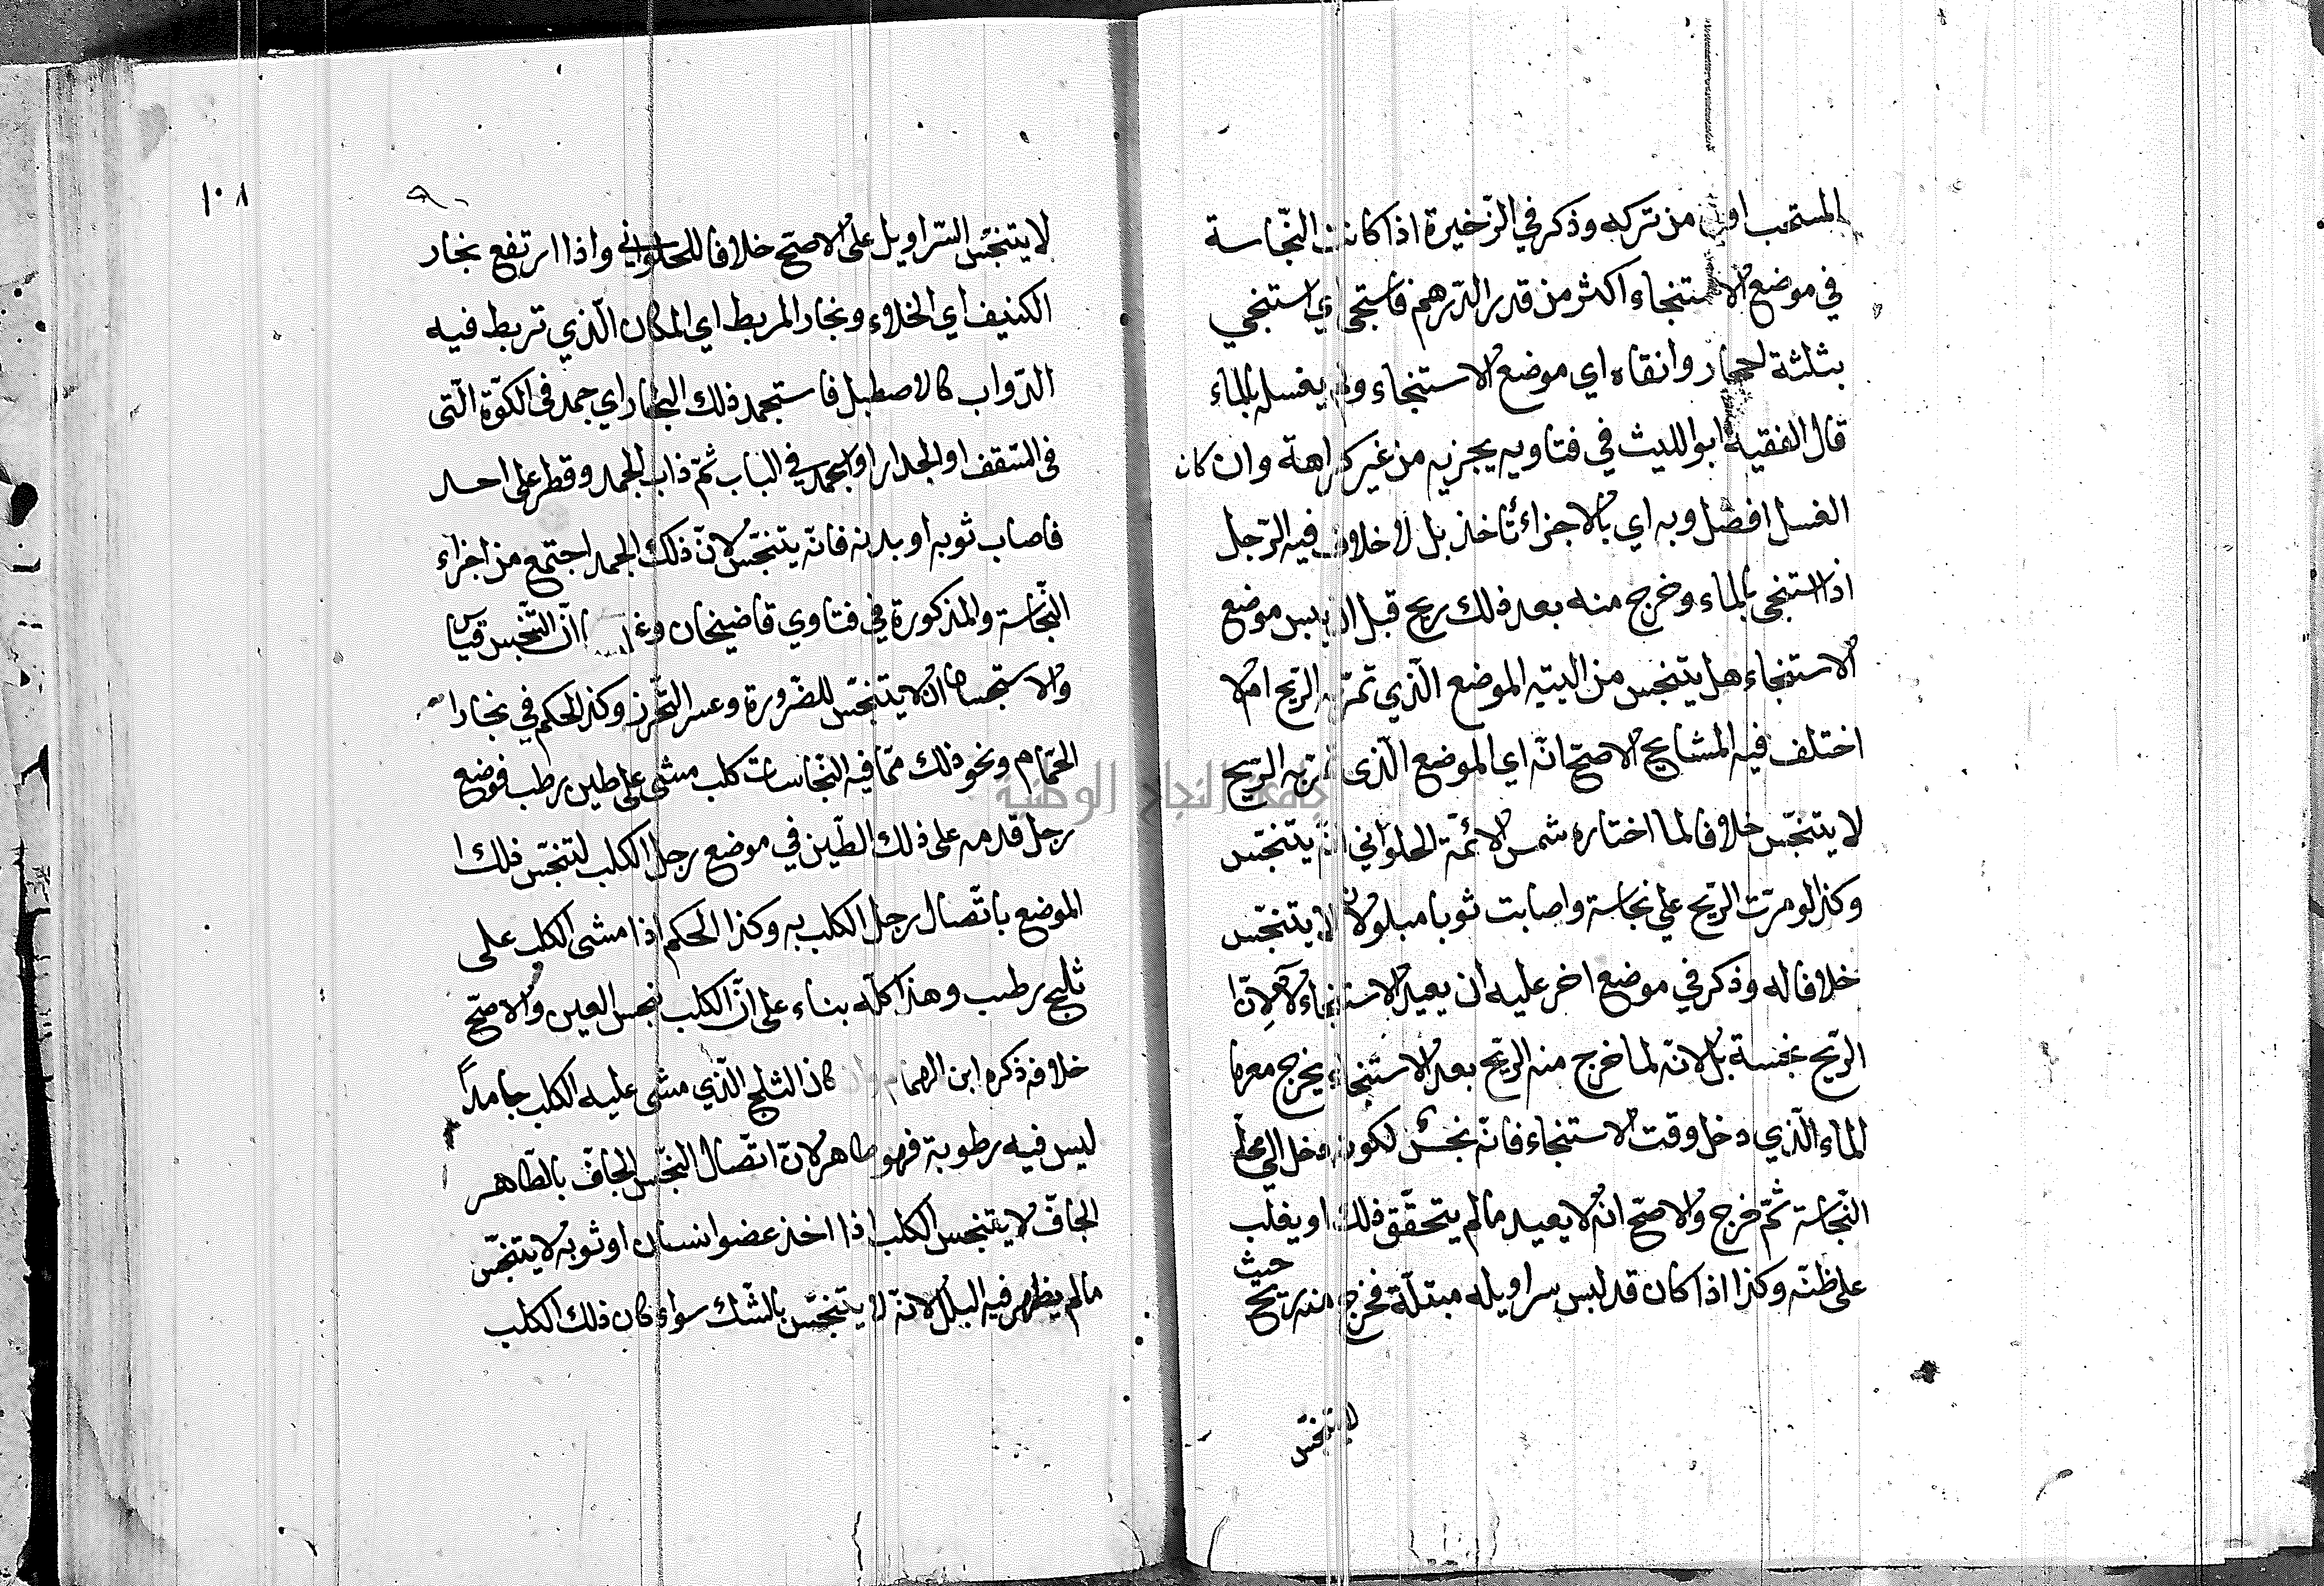 المستحب اولى من تركه وذكر في الذخيرة اذا كانت النجاسة
في موضع الاستنجاء اكثر من قدر الدرهم فاستجمر اي استنجي
بثلثة احجار وانقاه اي موضع الاستنجاء ولم يغسله بالماء
قال الفقيه ابو الليث في فتاويه يجزيه من غير كراهة وان كان
الغسل افضل وبه اي بالاجزاء نأخذ بل لا خلاف فيه الرجل
اذا استنجى بالماء وخرج منه بعد ذلك ريح قبل ان ييبس موضع
الاستنجاء هل يتنجس من اليتيه الموضع الذي تمر به الريح ام لا
اختلف فيه المشايخ الاصح انه اي الموضع الذى تمر به الريح
لا يتنجس خلافا لما اختاره شمس الائمة الحلواني انه يتنجس
وكذا لو مرت الريح على نجاسة واصابت ثوبا مبلولا لا يتنجس
خلافا له وذكر في موضع اخر عليه ان يعيد الاستنجاء لا لان
الريح نجسة بل لانه لما خرج منه الريح بعد الاستنجاء يخرج معها
الماء الذي دخل وقت الاستنجاء فانه نجس لكونه دخل الي محل
النجاسة ثم خرج والاصح انه لا يعيد ما لم يتحقق ذلك او يغلب
على ظنه وكذا اذا كان قد لبس سراويله مبتلة فخرج منه ريح حيث
لا يتنجس
١٠٨
٩٠
لا يتنجس السراويل على الاصح خلافا للحلواني واذا ارتفع بخار
الكنيف اي الخلاء وبخار المربط اي المكان الذي تربط فيه
الدواب كالاصطبل فاستجمد ذلك البخار اي جمد فى الكوة التى
فى السقف او الجدار او استجمد في الباب ثم ذاب الجمد وقطر على احد
فاصاب ثوبه او بدنه فانه يتنجس لان ذلك الجمد اجتمع من اجزاء
النجاسة والمذكورة في فتاوي قاضيخان ان التنجس قياس
والاستحسان ان لا يتنجس للضرورة وعسر التحرز وكذا الحكم في بخار
الحمام ونحو ذلك مما فيه النجاسات كلب مشى على طين رطب فوضع
رجل قدمه على ذلك الطين في موضع رجل الكلب لتنجس ذلك ا
الموضع باتصال رجل الكلب به وكذا الحكم اذا مشى الكلب على
ثلج رطب وهذا كله بناء على ان الكلب نجس العين والاصح
خلافه ذكره ابن الهمام وان كان الثلج الذي مشى عليه الكلب جامداً
ليس فيه رطوبة فهو طاهر لان اتصال النجس الجاف بالطاهر
الجاف لا يتنجس الكلب اذا اخذ عضو انسان او ثوبه لا يتنجس
ما لم يظهر فيه البلل لانه لا يتنجس بالشك سواء كان ذلك الكلب
جامعة النجاح الوطنية